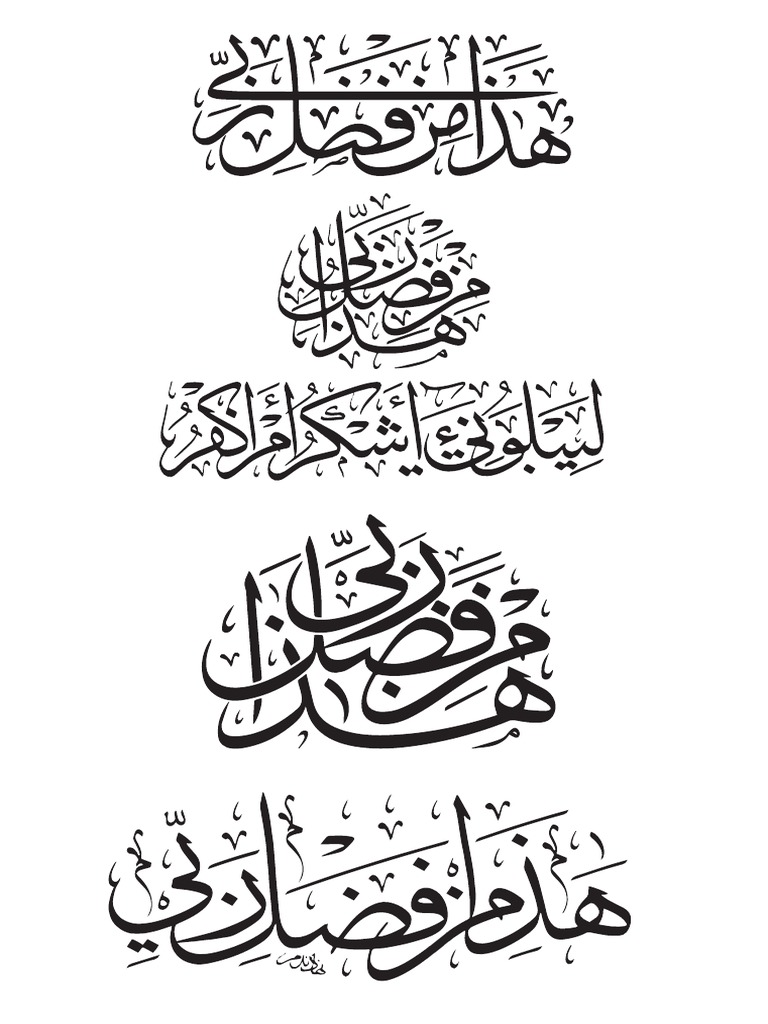 هذا من فضل ربي
هذا من فضل ربي
لِيَبْلُوَنِيٓ ءَأَشْكُرُ أَمْ أَكْفُرُ
هذا من فضل ربي
هذا من فضل ربي